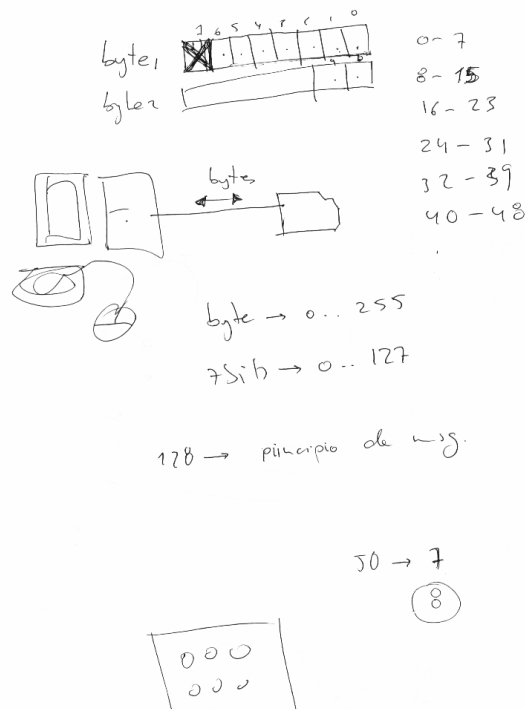 7 6 5 4 3 2 1 0
byte1
byte2
0 - 7
8 - 15
16 - 23
24 - 31
32 - 39
40 - 48
bytes
byte → 0 .. 255
7 bits → 0 .. 127
128 → principio de msg.
50 → 7
8